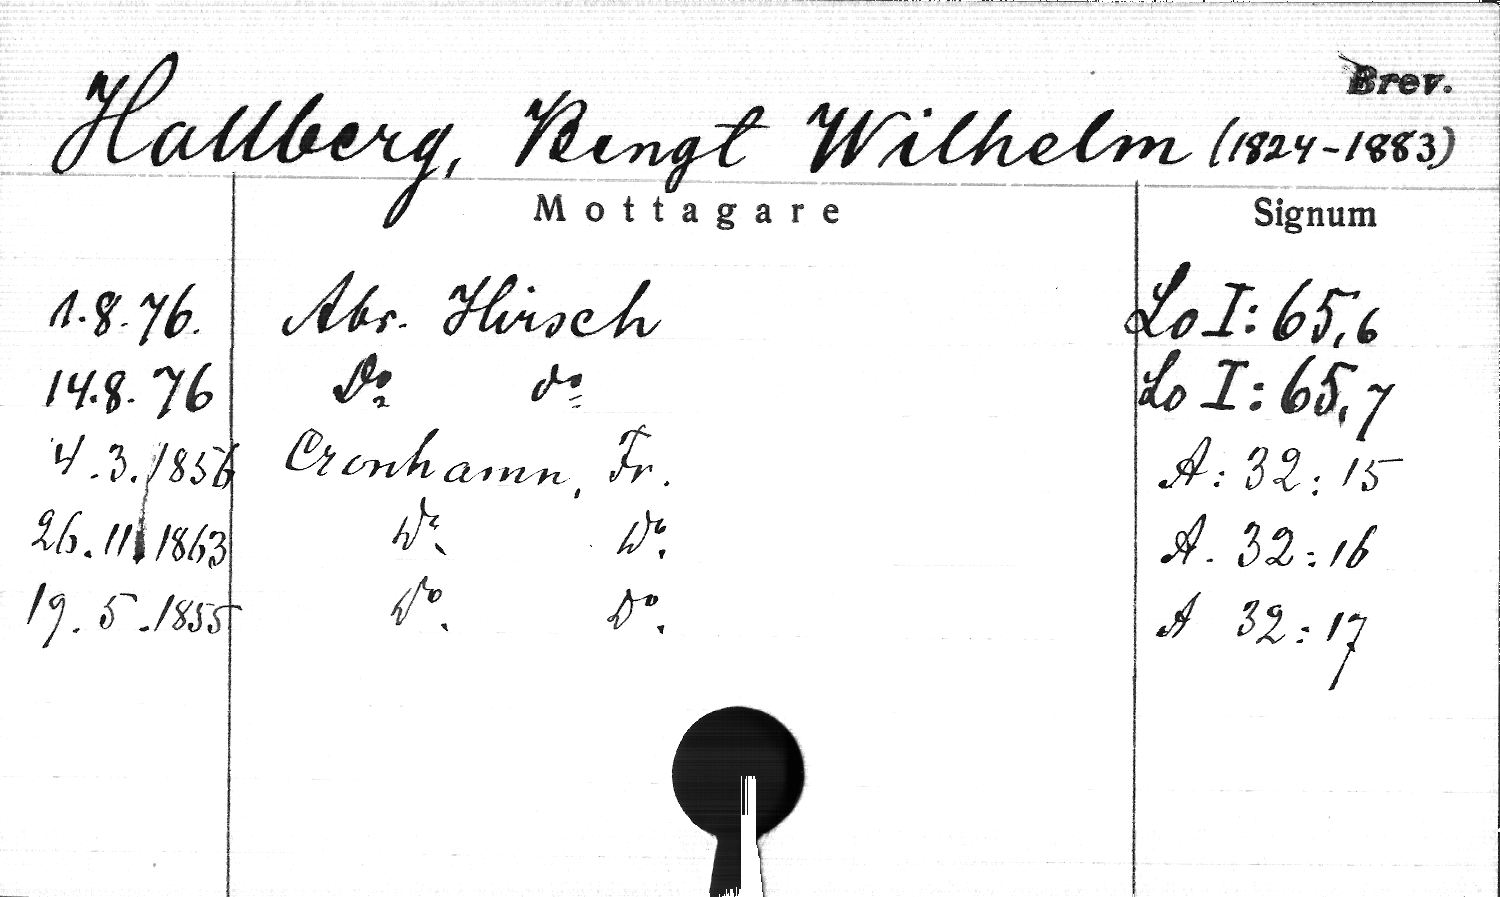 Brev.
Hallberg, Bengt Wilhelm (1824-1883)
Mottagare Signum
1.8.76. Abr. Hirsch Lo I: 65,6
14.8.76 Do do Lo I: 65,7
4.3.1856 Cronhamn, Fr. A: 32: 15
26.11.1863 Do. Do. A. 32: 16
19.5.1855 Do. Do. A 32: 17